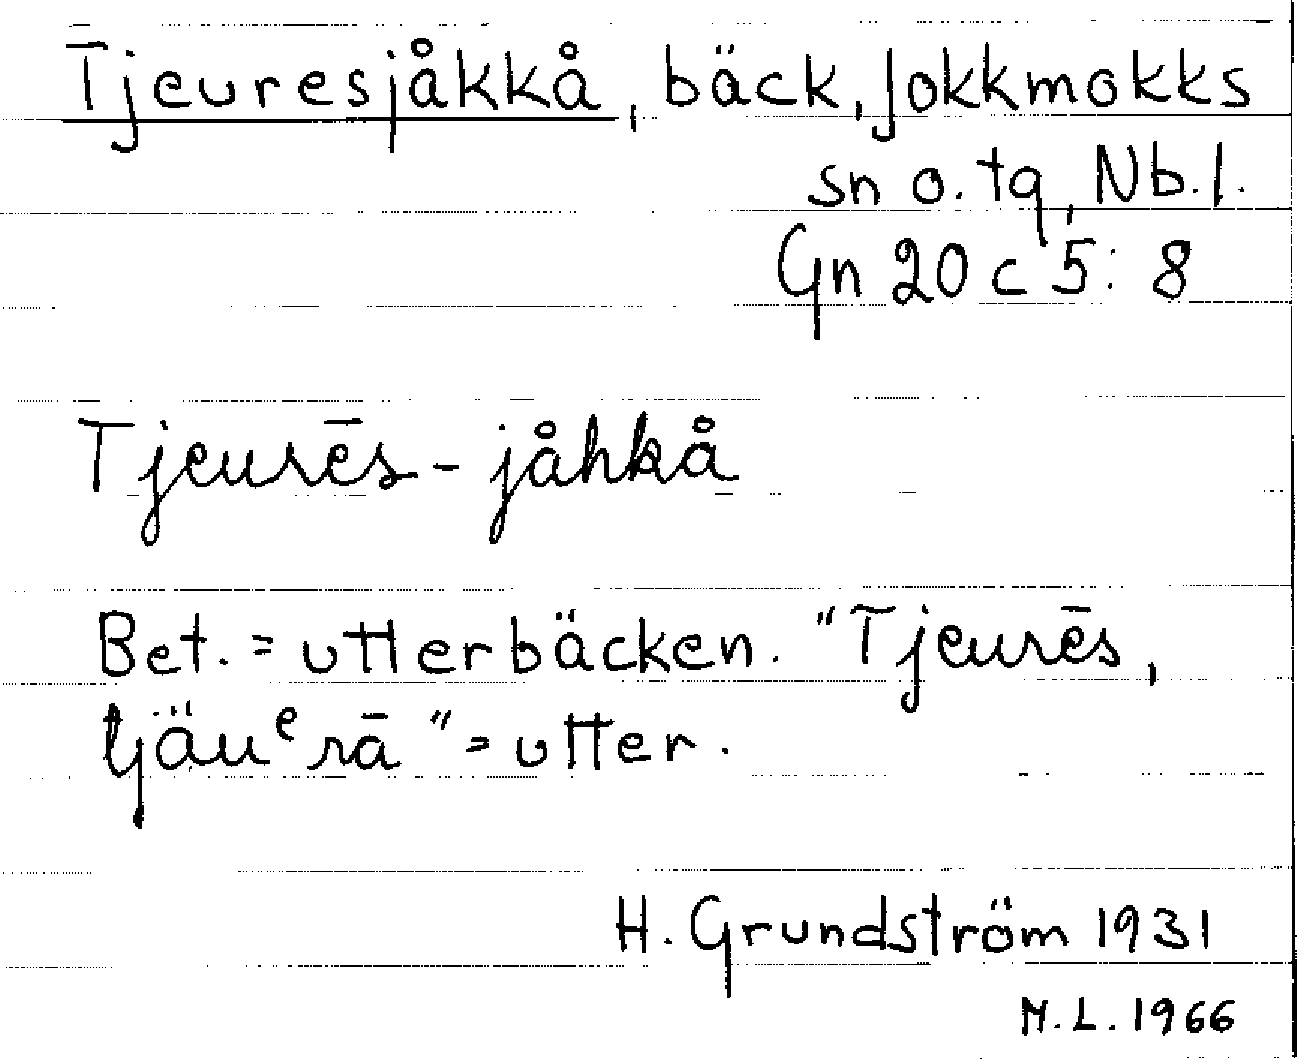 Tjeuresjåkkå, bäck, Jokkmokks
sn o. tg, Nb. l.
Gn 20 c 5: 8
Tjeurēs-jåhkå
Bet. = utterbäcken. "Tjeurēs,
tjäuᵉrā" = utter.
H. Grundström 1931
M.L. 1966